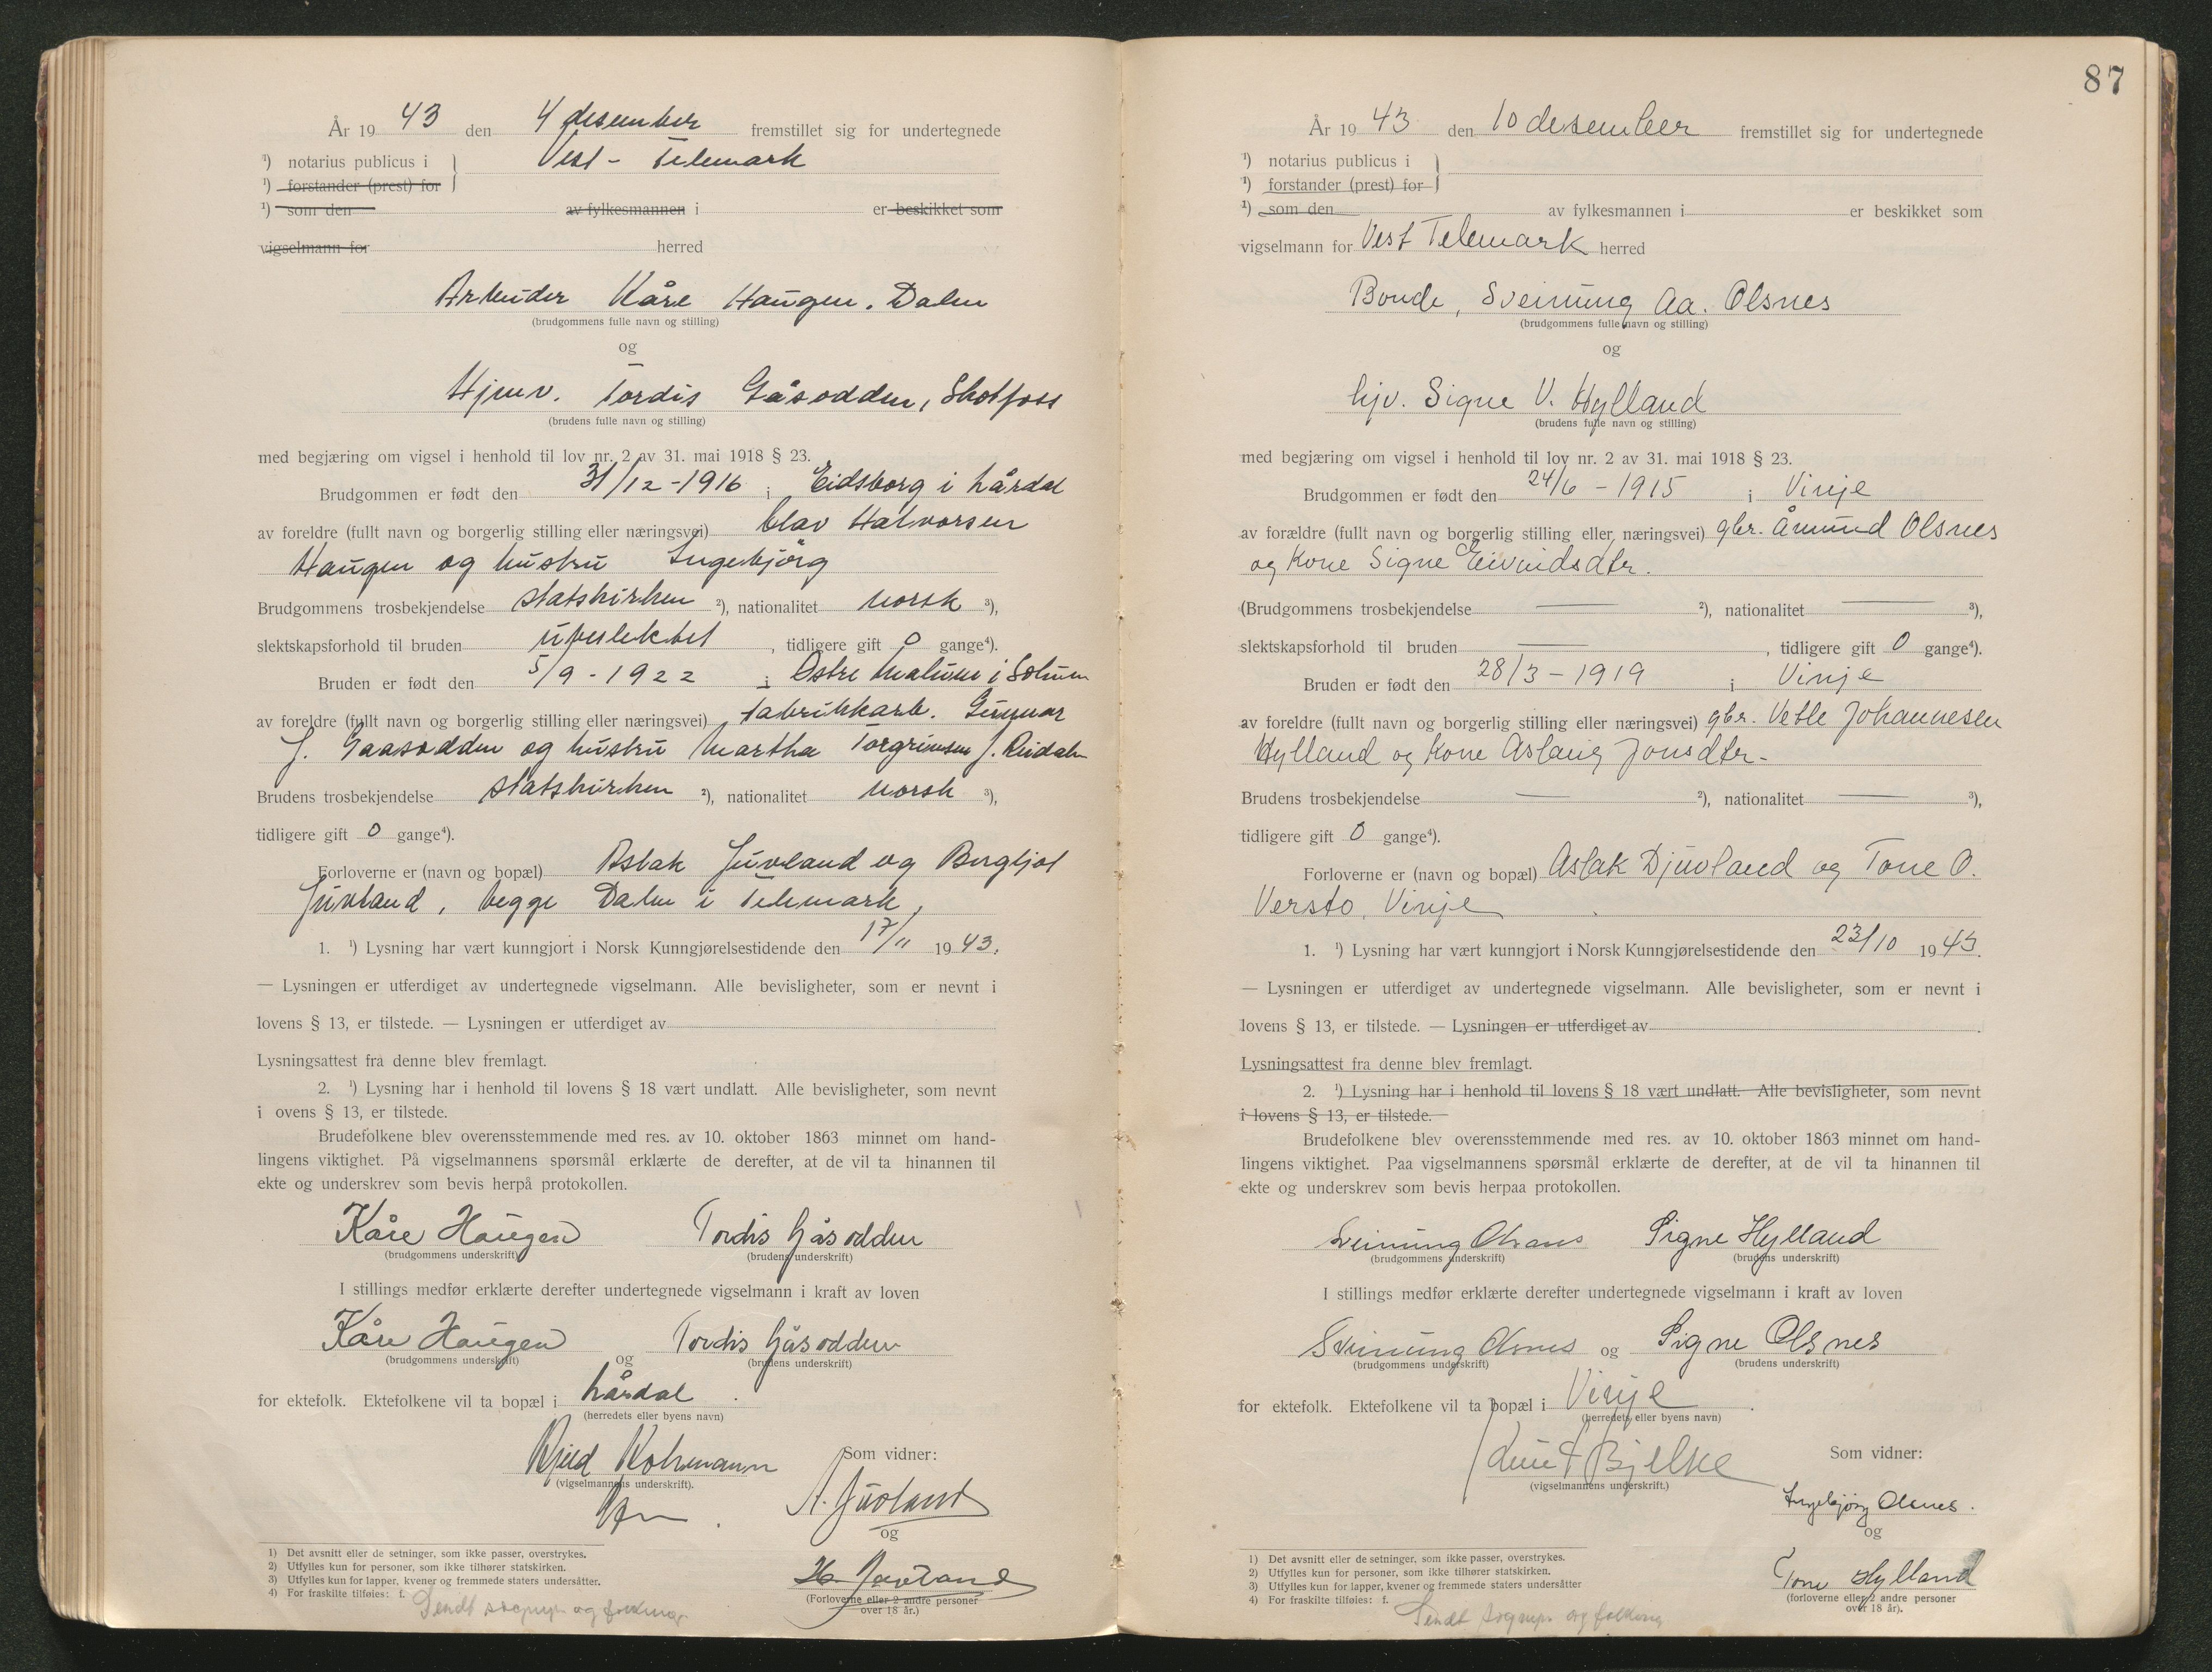 År 19 43 den 4 desember fremstillet sig for undertegnede
¹) notarius publicus i } Vest - Telemark
¹) forstander (prest) for
¹) som den av fylkesmannen i er beskikket som
vigselmann for herred
Arbeider Kåre Haugen. Dalen
(brudgommens fulle navn og stilling)
og
Hjemv. Tordis Gåsodden, Skotfoss
(brudens fulle navn og stilling)
med begjæring om vigsel i henhold til lov nr. 2 av 31. mai 1918 § 23.
Brudgommen er født den 31/12 - 1916 i Eidsborg i Lårdal
av foreldre (fullt navn og borgerlig stilling eller næringsvei) Olav Halvorsen
Haugen og hustru Ingebjörg
Brudgommens trosbekjendelse statskirken ²), nationalitet norsk ³),
slektskapsforhold til bruden ubeslektet, tidligere gift 0 gange⁴).
Bruden er født den 5/9 - 1922 i Østre i Solum
av foreldre (fullt navn og borgerlig stilling eller næringsvei) fabrikkarb. Gunnar
J. Gaasodden og hustru Martha Torgrimsen f. Reidalen
Brudens trosbekjendelse statskirken ²), nationalitet norsk ³),
tidligere gift 0 gange⁴).
Forloverne er (navn og bopæl) Aslak Juvland og Bergljot
Juvland, begge Dalen i Telemark,
1. ¹) Lysning har vært kunngjort i Norsk Kunngjørelsestidende den 17/11 19 43.
— Lysningen er utferdiget av undertegnede vigselmann. Alle bevisligheter, som er nevnt i
lovens § 13, er tilstede. — Lysningen er utferdiget av
Lysningsattest fra denne blev fremlagt.
2. ¹) Lysning har i henhold til lovens § 18 vært undlatt. Alle bevisligheter, som nevnt
i ovens § 13, er tilstede.
Brudefolkene blev overensstemmende med res. av 10. oktober 1863 minnet om hand-
lingens viktighet. På vigselmannens spørsmål erklærte de derefter, at de vil ta hinannen til
ekte og underskrev som bevis herpå protokollen.
Kåre Haugen Tordis Gåsodden
(brudgommens underskrift) (brudens underskrift)
I stillings medfør erklærte derefter undertegnede vigselmann i kraft av loven
Kåre Haugen og Tordis Gåsodden
(brudgommens underskrift) (brudens underskrift)
for ektefolk. Ektefolkene vil ta bopæl i Lårdal.
(herredets eller byens navn)
Kjeld Kohmann Som vidner:
(vigselmannens underskrift).
A. Juvland
og
H. Juvland
(Forloverne eller 2 andre personer
over 18 år.)
1) Det avsnitt eller de setninger, som ikke passer, overstrykes.
2) Utfylles kun for personer, som ikke tilhører statskirken.
3) Utfylles kun for lapper, kvener og fremmede staters undersåtter.
4) For fraskilte tilføies: f.
Sendt sognepr. og folkereg.
87
År 19 43 den 10 desember fremstillet sig for undertegnede
¹) notarius publicus i }
¹) forstander (prest) for
¹) som den av fylkesmannen i er beskikket som
vigselmann for Vest Telemark herred
Bonde, Sveinung Aa. Olsnes
(brudgommens fulle navn og stilling)
og
hjv. Signe V. Hylland
(brudens fulle navn og stilling)
med begjæring om vigsel i henhold til lov nr. 2 av 31. mai 1918 § 23.
Brudgommen er født den 24/6 - 1915 i Vinje
av forældre (fullt navn og borgerlig stilling eller næringsvei) gbr. Åmund Olsnes
og kone Signe Eivindsdtr.
(Brudgommens trosbekjendelse — ²), nationalitet — ³),
slektskapsforhold til bruden —, tidligere gift 0 gange⁴).
Bruden er født den 28/3 - 1919 i Vinje
av foreldre (fullt navn og borgerlig stilling eller næringsvei) gbr. Vetle Johannesen
Hylland og kone Aslaug Jonsdtr.
Brudens trosbekjendelse — ²), nationalitet — ³),
tidligere gift 0 gange⁴).
Forloverne er (navn og bopæl) Aslak Djuvland og Tone O.
Versto, Vinje
1. ¹) Lysning har vært kunngjort i Norsk Kunngjørelsestidende den 23/10 19 43.
— Lysningen er utferdiget av undertegnede vigselmann. Alle bevisligheter, som er nevnt i
lovens § 13, er tilstede. — Lysningen er utferdiget av .
Lysningsattest fra denne blev fremlagt.
2. ¹) Lysning har i henhold til lovens § 18 vært undlatt. Alle bevisligheter, som nevnt
i lovens § 13, er tilstede.
Brudefolkene blev overensstemmende med res. av 10. oktober 1863 minnet om hand-
lingens viktighet. Paa vigselmannens spørsmål erklærte de derefter, at de vil ta hinannen til
ekte og underskrev som bevis herpaa protokollen.
Sveinung Olsnes Signe Hylland
(brudgommens underskrift) (brudens underskrift)
I stillings medfør erklærte derefter undertegnede vigselmann i kraft av loven
Sveinung Olsnes og Signe Olsnes
(brudgommens underskrift) (brudens underskrift)
for ektefolk. Ektefolkene vil ta bopæl i Vinje.
(herredets eller byens navn)
Knut Bjelke Som vidner:
(vigselmannens underskrift.)
Ingebjørg Olsnes.
og
Tone Hylland
(forloverne eller 2 andre personer
over 18 år).
1) Det avsnitt eller de setninger, som ikke passer, overstrykes.
2) Utfylles kun for personer, som ikke tilhører statskirken.
3) Utfylles kun for lapper, kvener og fremmede staters undersåtter
4) For fraskilte tilføies: f.
Sendt sognepr. og folkereg